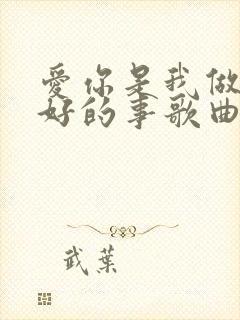 愛你是我做
好的事歌曲
武葉